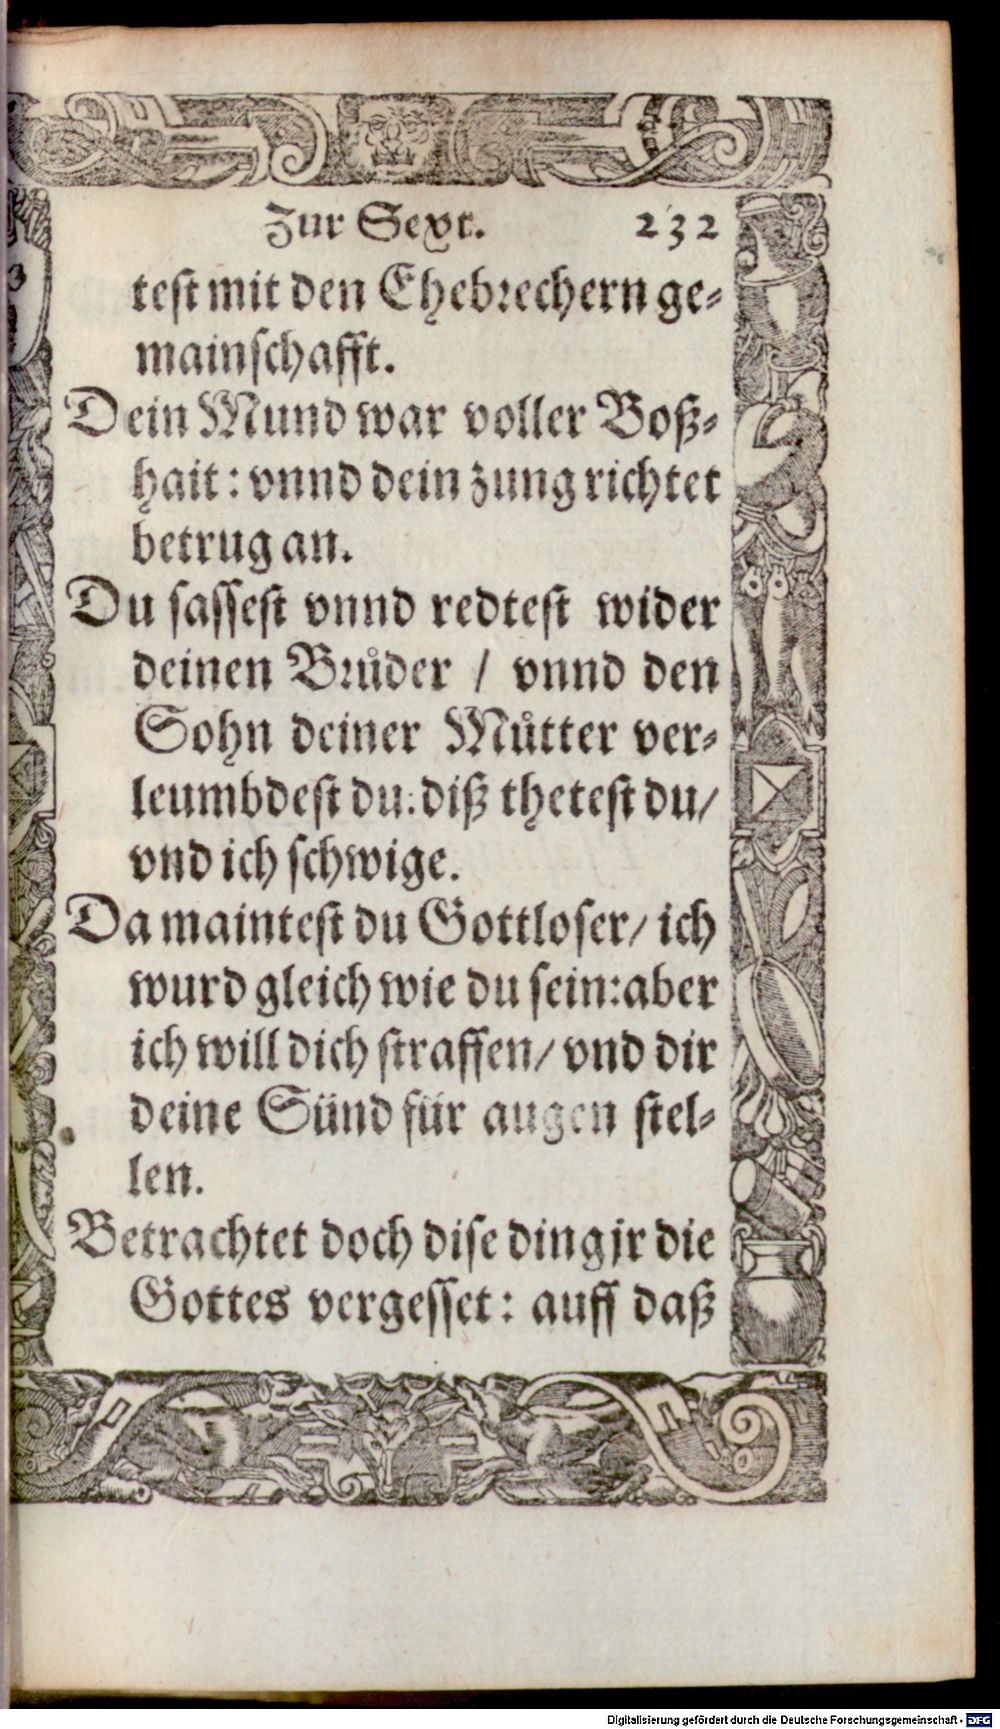 Zur Sext. 232
test mit den Ehebrechern ge⸗
mainschafft.
Dein Mund war voller Boß⸗
hait: vnnd dein zung richtet
betrug an.
Du sassest vnnd redtest wider
deinen Bruͦder / vnnd den
Sohn deiner Muͦtter ver⸗
leumbdest du: diß thetest du/
vnd ich schwige.
Da maintest du Gottloser/ ich
wurd gleich wie du sein: aber
ich will dich straffen/ vnd dir
deine Sünd für augen stel⸗
len.
Betrachtet doch dise ding jr die
Gottes vergesset: auff daß
Digitalisierung gefördert durch die Deutsche Forschungsgemeinschaft - DFG